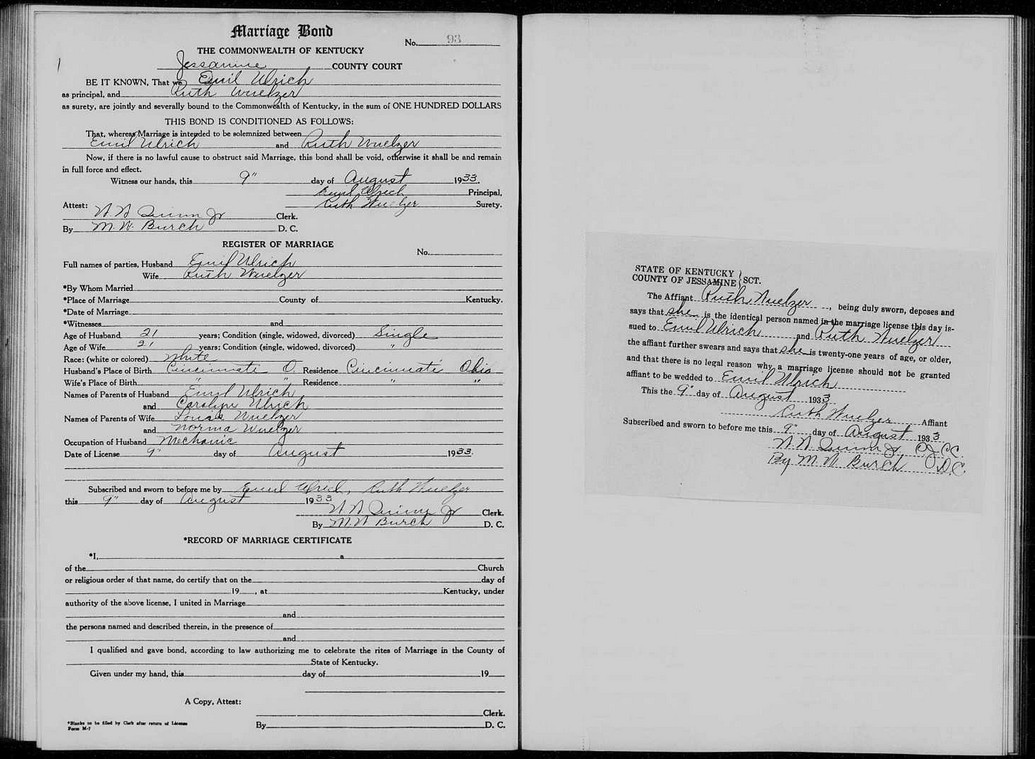 Marriage Bond
No. 93
THE COMMONWEALTH OF KENTUCKY
Jessamine COUNTY COURT
BE IT KNOWN, That we Emil Ulrich
as principal, and Ruth Wuelzer
as surety, are jointly and severally bound to the Commonwealth of Kentucky, in the sum of ONE HUNDRED DOLLARS
THIS BOND IS CONDITIONED AS FOLLOWS:
That, whereas Marriage is intended to be solemnized between
Emil Ulrich and Ruth Wuelzer
Now, if there is no lawful cause to obstruct said Marriage, this bond shall be void, otherwise it shall be and remain
in full force and effect.
Witness our hands, this 9" day of August 1933.
Emil Ulrich Principal,
Ruth Wuelzer Surety.
Attest: W N Quinn Jr Clerk.
By M. W. Burch D. C.
REGISTER OF MARRIAGE
No.
Full names of parties, Husband Emil Ulrich
Wife Ruth Wuelzer
*By Whom Married
*Place of Marriage County of Kentucky.
*Date of Marriage
*Witnesses and
Age of Husband 21 years; Condition (single, widowed, divorced) Single
Age of Wife 21 years; Condition (single, widowed, divorced) "
Race: (white or colored) White
Husband's Place of Birth Cincinnati O. Residence Cincinnati Ohio
Wife's Place of Birth " " Residence " "
Names of Parents of Husband Emil Ulrich
and Carolyn Ulrich
Names of Parents of Wife Louis Wuelzer
and Norma Wuelzer
Occupation of Husband Mechanic
Date of License 9" day of August 1933.
Subscribed and sworn to before me by Emil Ulrich, Ruth Wuelzer
this 9" day of August 1933
W N Quinn Jr Clerk.
By M W Burch D. C.
*RECORD OF MARRIAGE CERTIFICATE
*I, a
of the Church
or religious order of that name, do certify that on the day of
19 , at Kentucky, under
authority of the above license, I united in Marriage
and
the persons named and described therein, in the presence of
and
I qualified and gave bond, according to law authorizing me to celebrate the rites of Marriage in the County of
State of Kentucky.
Given under my hand, this day of 19
A Copy, Attest:
Clerk.
By D. C.
*Blanks to be filled by Clerk after return of License
Form M-7
STATE OF KENTUCKY
COUNTY OF JESSAMINE SCT.
The Affiant Ruth Wuelzer, being duly sworn, deposes and
says that she is the identical person named in the marriage license this day is-
sued to Emil Ulrich and Ruth Wuelzer
the affiant further swears and says that she is twenty-one years of age, or older,
and that there is no legal reason why a marriage license should not be granted
affiant to be wedded to Emil Ulrich
This the 9" day of August 1933
Ruth Wuelzer Affiant
Subscribed and sworn to before me this 9" day of August 1933
W N Quinn Jr
By M W Burch D.C.